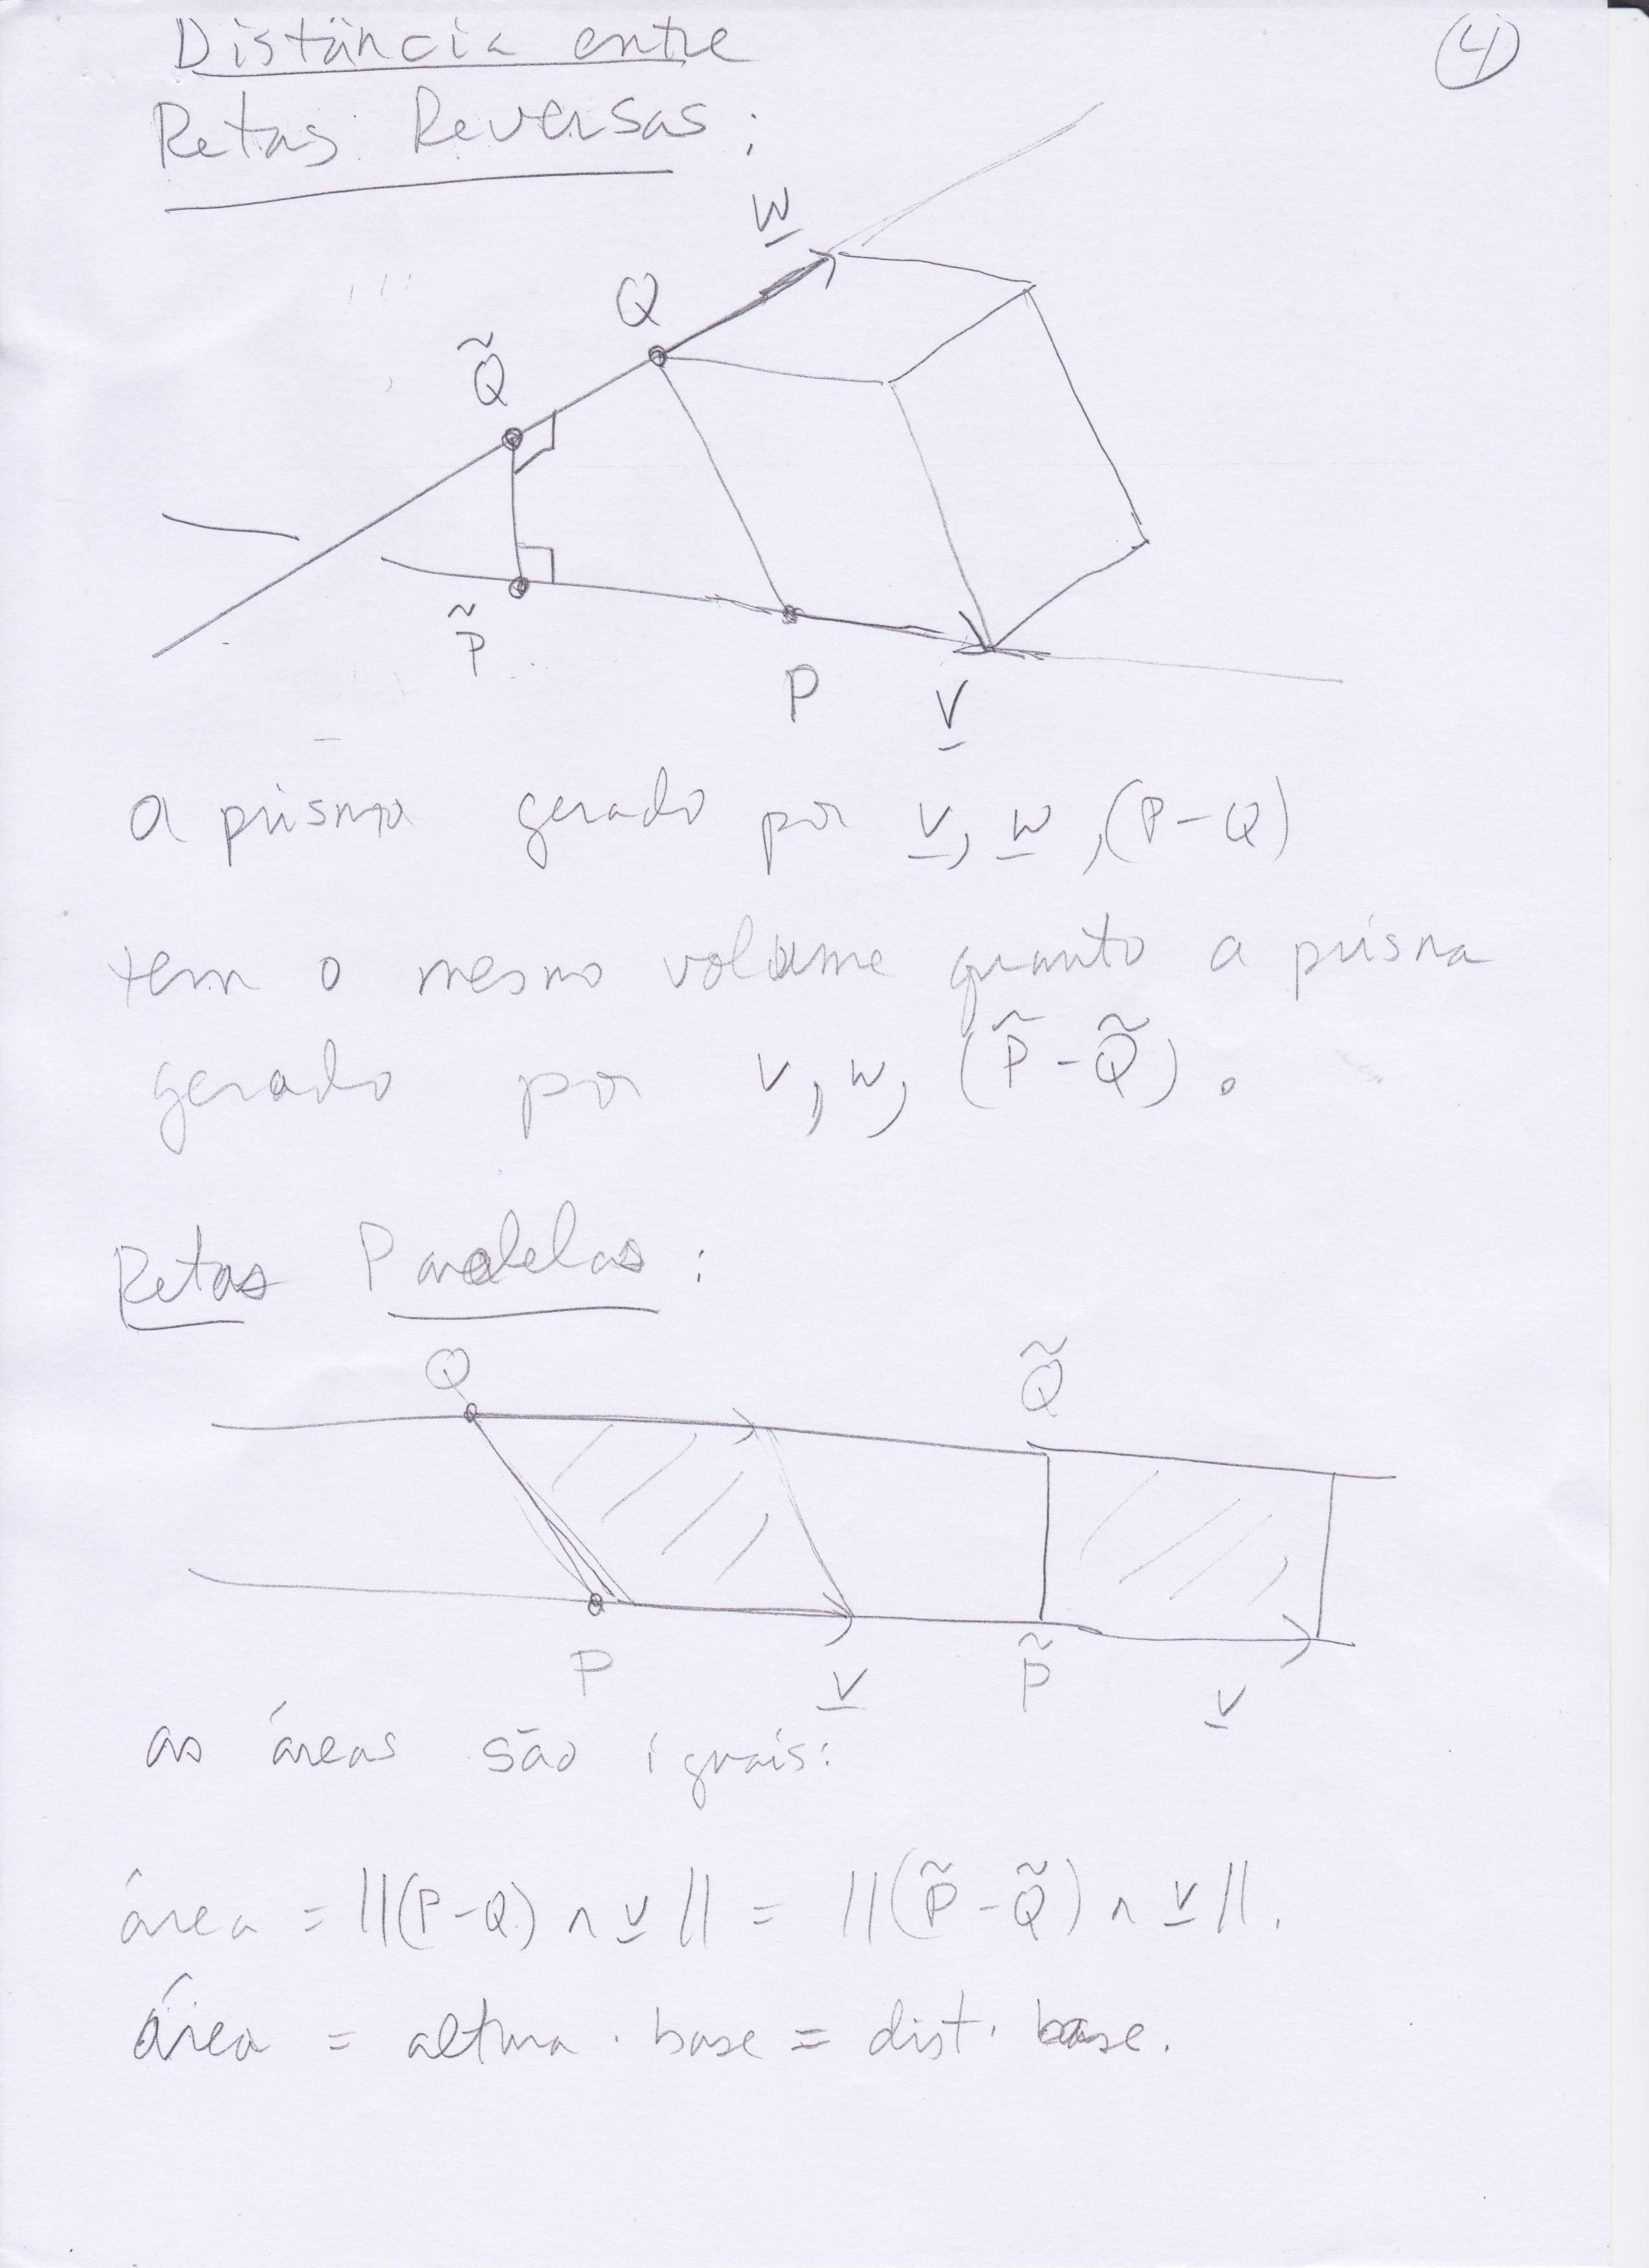 Distância entre
④
Retas Reversas:
w
Q
Q̃
P̃
P
v
a prisma gerado por v, w, (P-Q)
tem o mesmo volume quanto a prisma
gerado por v, w, (P̃-Q̃).
Retas Paralelas:
Q
Q̃
P
v
P̃
v
as áreas são iguais:
área = ||(P-Q) ∧ v|| = ||(P̃-Q̃) ∧ v||.
área = altura · base = dist · base.